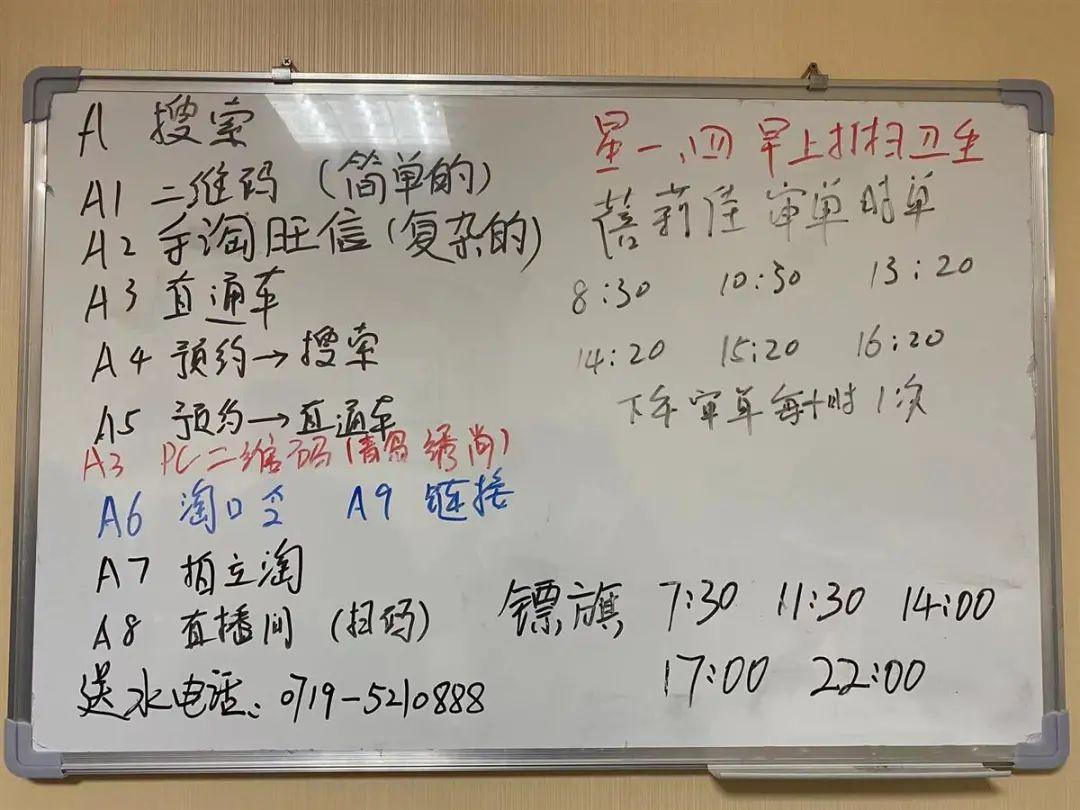 A 搜索
A1 二维码 (简单的)
A2 手淘旺信 (复杂的)
A3 直通车
A4 预约→搜索
A5 预约→直通车
A3 PC二维码 (青鸟 绣尚)
A6 淘口令 A9 链接
A7 拍立淘
A8 直播间 (扫码)
送水电话: 0719-5210888
星一、四 早上打扫卫生
莉佳 审单时单
8:30 10:30 13:20
14:20 15:20 16:20
下午审单每小时1次
镖旗 7:30 11:30 14:00
17:00 22:00